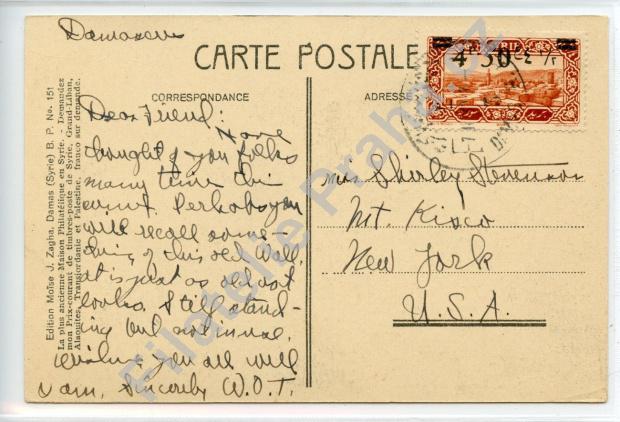 Damascus
CARTE POSTALE
CORRESPONDANCE
ADRESSE
4 P. 50
Edition Moïse J. Zagha, Damas (Syrie) B. P. No. 151
La plus ancienne Maison Philatélique en Syrie. - Demandez
mon Prix-courant de timbres-poste de Syrie, Grand-Liban,
Alaouites, Transjordanie et Palestine, franco sur demande.
Dear Friend:
Have
thought of you folks
many time this
Perhaps you
will recall some-
thing of this old Wall.
it is just as old as it
looks. Still stand-
ing but not in use.
wishing you all well
I am, Sincerely W.O.T.
Miss Shirley Stevenson
Mt. Kisco
New York
U.S.A.
Filatelie Praha.cz